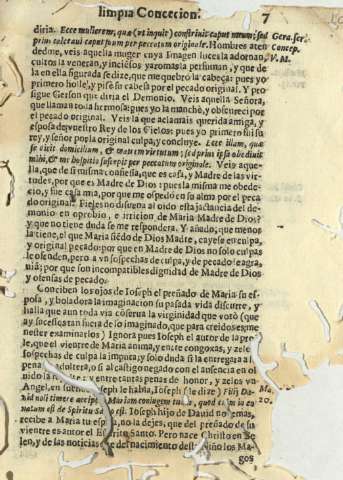 limpia Concecion. 7
diria. Ecce mulierem, quæ (vt inquit) construit caput meum; sed Gers. ser.
prius calcaui caput suum per peccatum originale. Hombres aten Concep.
dedme, veis aquella muger cuya Imagen luceis la adornan, V. M.
cultos la veneran, y inciēsos yaromas la perfuman, y que de
la en ella figurada se dize, que me quebrò la cabeça; pues yo
primero hollè, y pisè su cabeça por el pecado original. Y pro-
sigue Gerson que diria el Demonio. Veis aquella Señora,
que llaman toda hermosa; pues yo la manchè, y obscureci por
el pecado original. Veis la que aclamais querida amiga, y
esposa de vuestro Rey de los Cielos; pues yo primero fui su
rey, y señor por la original culpa, y concluye. Ecce illam, quæ
se dixit domicilium, & matrem virtutum; sed prius ipsa obediuit
mihi, & me hospitio suscepit per peccatum originale. Veis aque-
lla, que de si misma confiessa, que es casa, y Madre de las vir-
tudes, por que es Madre de Dios; pues la misma me obede-
ciò, y fue casa mia, por que me ospedò en su alma por el peca-
do original. Fieles no disuena al oido esta jactancia del de-
monio en oprobio, e irricion de Maria Madre de Dios?
y que no tiene duda se me respondera. Y añado, que menos
la tiene, el que Maria siēdo de Dios Madre, cayesse en culpa,
y original pecado; por que en Madre de Dios no solo culpas
le ofenden, pero a vn sospechas de culpa, y de pecado le agra-
uia; por que son incompatibles dignidad de Madre de Dios
y ofensas de pecado.
Conciben los ojos de Ioseph el preñado de Maria su es-
posa, y boladora la imaginacion su pasada vida discurre, y
halla que aun toda via cōserua la virginidad que votò (que
ay sucesos tan fuera de lo imaginado, que para creidos es me-
nester examinarlos) Ignora pues Ioseph el autor de la pre-
le, que el vientre de Maria anima, y entre congoxas, y zelos
sospechas de culpa la imputa; y solo duda si la entregara a la
pena adultera, o si al castigo negado con el ausencia en ol
uido la y entre tantas penas de honor, y zelos va
Angel, en sueños Ioseph le habla, Ioseph (le dize) Fili Da- Ma.
uid noli timere accipe Mariam coniugem tuam, quod enim in ea 20.
natum est de Spiritu Sancto est. Ioseph hijo de Dauid no temas,
recibe a Maria tu esposa, no la dejes, que del preñado de su
vientre es autor el Espiritu santo. Pero nace Christo en Be-
len, y de las noticias de nacimiento deste niño los Ma-
gos